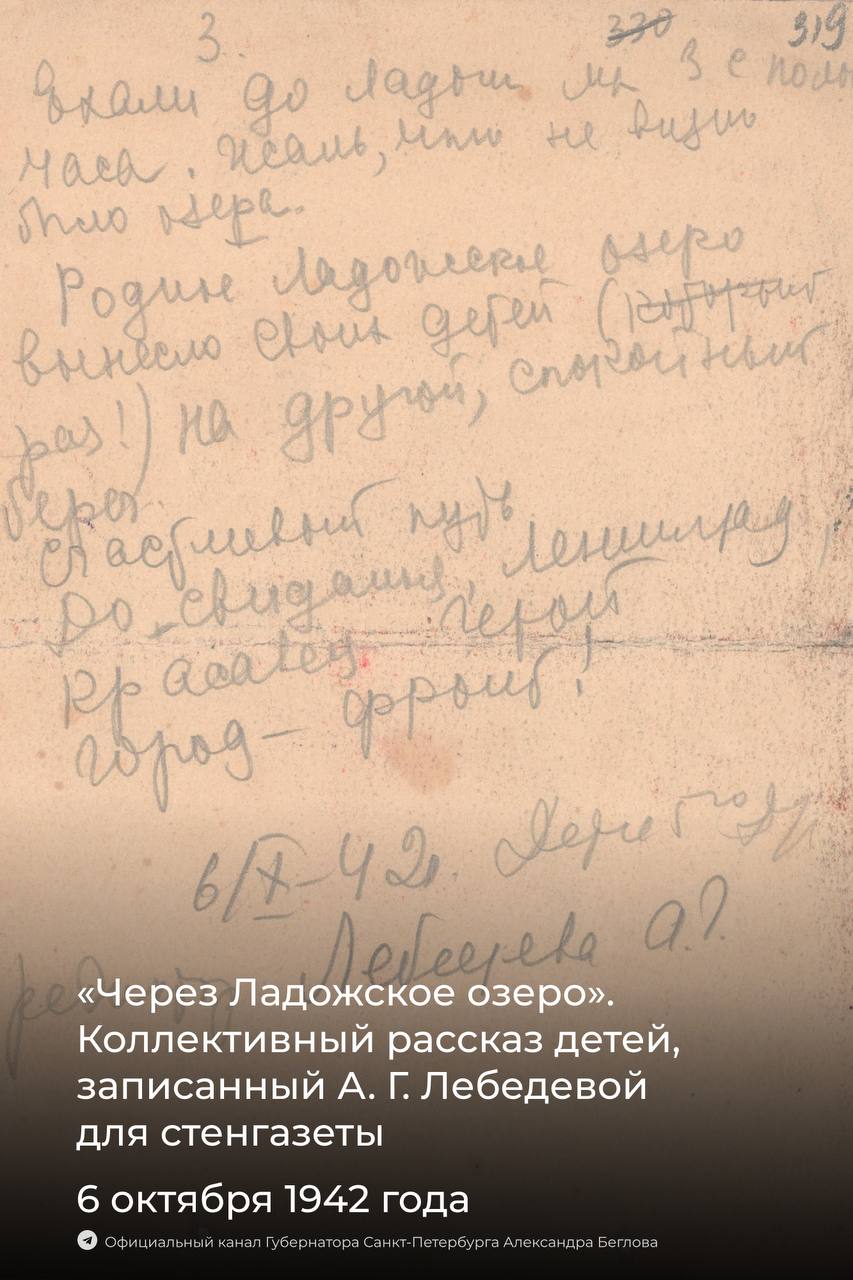 3. 330 319
Ехали до Ладоги мы 3 с полов
часа. Жаль, что не видно
было озера.
Родине Ладожское озеро
вынесло своих детей (который
раз!) на другой, спокойный
берег.
Счастливый путь
До-свидания, Ленинград,
Красавец герой
город- фронт!
6/X-42г.
Лебедева А.Г.
«Через Ладожское озеро».
Коллективный рассказ детей,
записанный А. Г. Лебедевой
для стенгазеты
6 октября 1942 года
Официальный канал Губернатора Санкт-Петербурга Александра Беглова